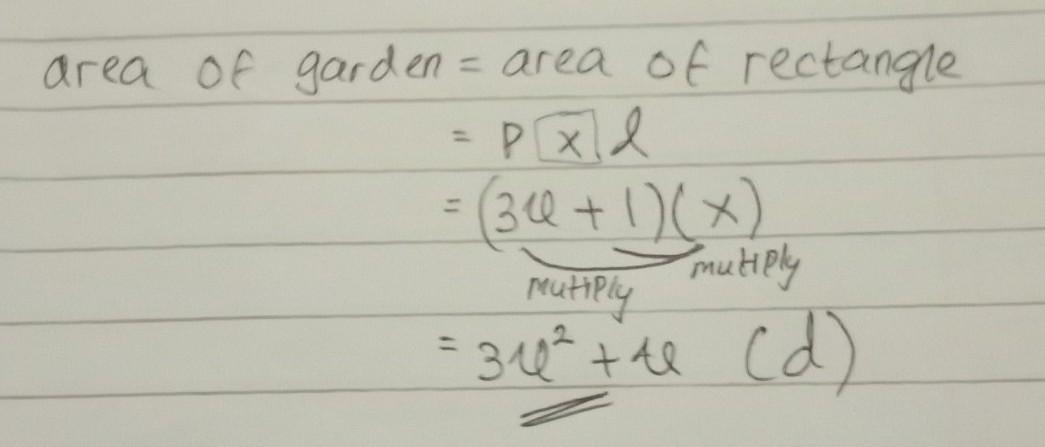 area of garden = area of rectangle
= p x l
= (3x + 1)(x)
mutiply
mutiply
= 3x² + x (d)